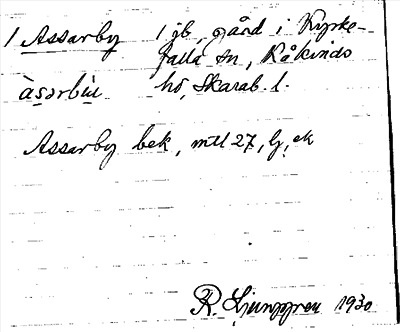 1 Assarby 1 jb, gård i Kyrke-
falla sn, Kåkinds
àsarbìu hd, Skarab. l.
Assarby bek, mtl 27, lj, ek
R. Ljunggren 1930